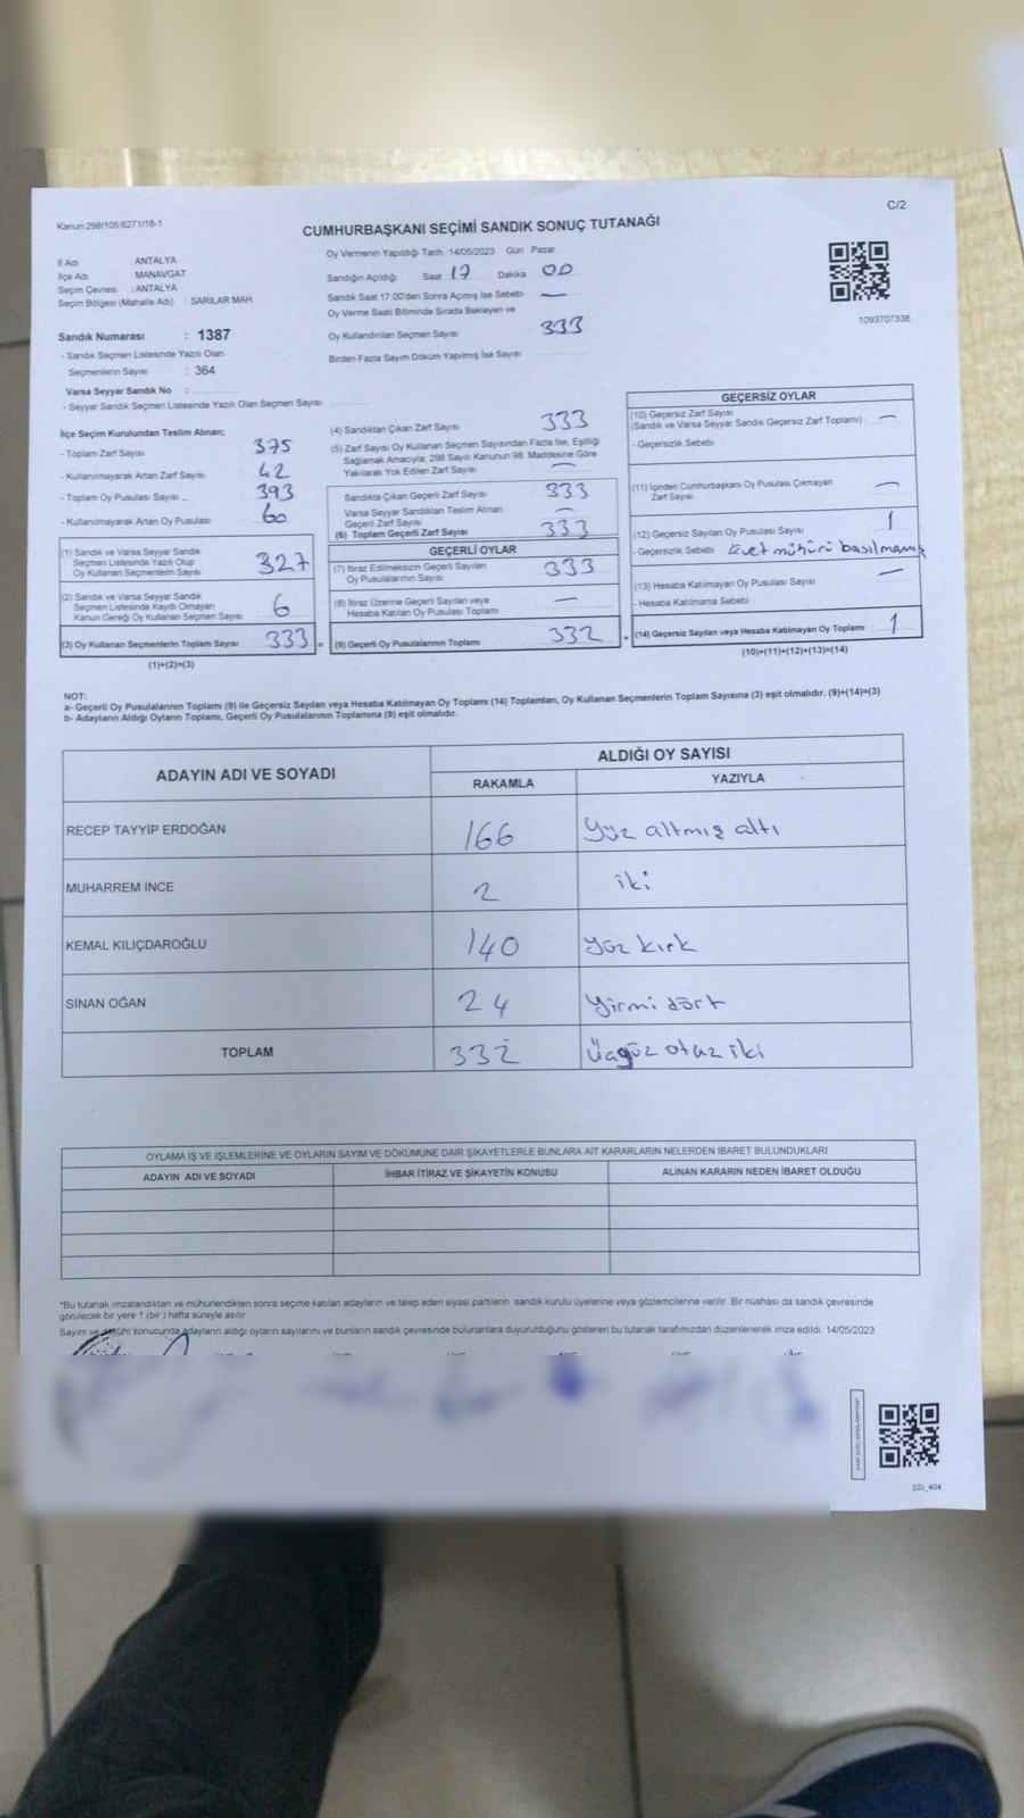 Kanun:298/105/6271/18-1
C/2
CUMHURBAŞKANI SEÇİMİ SANDIK SONUÇ TUTANAĞI
İl Adı ANTALYA
İlçe Adı MANAVGAT
Seçim Çevresi : ANTALYA
Seçim Bölgesi (Mahalle Adı) : SARILAR MAH
Oy Vermenin Yapıldığı Tarih 14/05/2023 Gün Pazar
Sandığın Açıldığı Saat 17 Dakika 00
Sandık Saat 17.00'den Sonra Açılmış İse Sebebi —
Oy Verme Saati Bitiminde Sırada Bekleyen ve
Oy Kullandırılan Seçmen Sayısı 333
Birden Fazla Sayım Döküm Yapılmış İse Sayısı
1093707338
Sandık Numarası : 1387
- Sandık Seçmen Listesinde Yazılı Olan
Seçmenlerin Sayısı : 364
Varsa Seyyar Sandık No :
- Seyyar Sandık Seçmen Listesinde Yazılı Olan Seçmen Sayısı
İlçe Seçim Kurulundan Teslim Alınan;
- Toplam Zarf Sayısı 375
- Kullanılmayarak Artan Zarf Sayısı 42
- Toplam Oy Pusulası Sayısı 393
- Kullanılmayarak Artan Oy Pusulası 60
(1) Sandık ve Varsa Seyyar Sandık
Seçmen Listesinde Yazılı Olup
Oy Kullanan Seçmenlerin Sayısı 327
(2) Sandık ve Varsa Seyyar Sandık
Seçmen Listesinde Kaydı Olmayan
Kanun Gereği Oy Kullanan Seçmen Sayısı 6
(3) Oy Kullanan Seçmenlerin Toplam Sayısı 333 =
(1)+(2)=(3)
(4) Sandıktan Çıkan Zarf Sayısı 333
(5) Zarf Sayısı Oy Kullanan Seçmen Sayısından Fazla İse, Eşitliği
Sağlamak Amacıyla; 298 Sayılı Kanunun 98. Maddesine Göre
Yakılarak Yok Edilen Zarf Sayısı —
Sandıkta Çıkan Geçerli Zarf Sayısı 333
Varsa Seyyar Sandıktan Teslim Alınan
Geçerli Zarf Sayısı —
(6) Toplam Geçerli Zarf Sayısı 333
GEÇERLİ OYLAR
(7) İtiraz Edilmeksizin Geçerli Sayılan
Oy Pusulalarının Sayısı 333
(8) İtiraz Üzerine Geçerli Sayılan veya
Hesaba Katılan Oy Pusulası Toplamı —
(9) Geçerli Oy Pusulalarının Toplamı 332 +
GEÇERSİZ OYLAR
(10) Geçersiz Zarf Sayısı
(Sandık ve Varsa Seyyar Sandık Geçersiz Zarf Toplamı) —
- Geçersizlik Sebebi
(11) İçinden Cumhurbaşkanı Oy Pusulası Çıkmayan
Zarf Sayısı —
(12) Geçersiz Sayılan Oy Pusulası Sayısı 1
- Geçersizlik Sebebi Evet mühürü basılmamış
(13) Hesaba Katılmayan Oy Pusulası Sayısı —
- Hesaba Katılmama Sebebi
(14) Geçersiz Sayılan veya Hesaba Katılmayan Oy Toplamı 1
(10)+(11)+(12)+(13)=(14)
NOT:
a- Geçerli Oy Pusulalarının Toplamı (9) ile Geçersiz Sayılan veya Hesaba Katılmayan Oy Toplamı (14) Toplamları, Oy Kullanan Seçmenlerin Toplam Sayısına (3) eşit olmalıdır. (9)+(14)=(3)
b- Adayların Aldığı Oyların Toplamı, Geçerli Oy Pusulalarının Toplamına (9) eşit olmalıdır.
ADAYIN ADI VE SOYADI
ALDIĞI OY SAYISI
RAKAMLA YAZIYLA
RECEP TAYYİP ERDOĞAN 166 Yüz altmış altı
MUHARREM İNCE 2 iki
KEMAL KILIÇDAROĞLU 140 yüz kırk
SİNAN OĞAN 24 Yirmi dört
TOPLAM 332 Üçyüz otuz iki
OYLAMA İŞ VE İŞLEMLERİNE VE OYLARIN SAYIM VE DÖKÜMÜNE DAİR ŞİKAYETLERLE BUNLARA AİT KARARLARIN NELERDEN İBARET BULUNDUKLARI
ADAYIN ADI VE SOYADI İHBAR İTİRAZ VE ŞİKAYETİN KONUSU ALINAN KARARIN NEDEN İBARET OLDUĞU
*Bu tutanak imzalandıktan ve mühürlendikten sonra seçime katılan adayların ve talep eden siyasi partilerin sandık kurulu üyelerine veya gözlemcilerine verilir. Bir nüshası da sandık çevresinde
görülecek bir yere 1 (bir) hafta süreyle asılır
Sayım ve dökümü sonucunda adayların aldığı oyların sayılarını ve bunların sandık çevresinde bulunanlara duyurulduğunu gösteren bu tutanak tarafımızdan düzenlenerek imza edildi. 14/05/2023